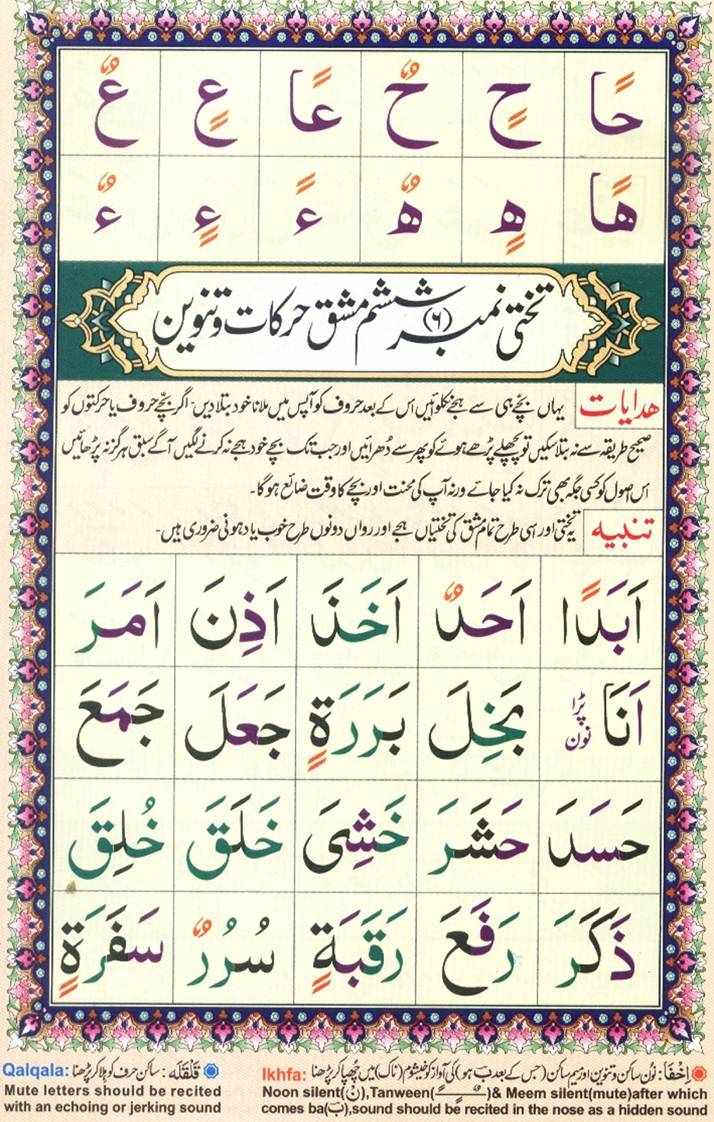 حًا حٍ حٌ عًا عٍ عٌ
هًا هٍ هٌ ءً ءٍ ءٌ
تختی نمبر (۶) ششم مشق حرکات و تنوین
هدایات یہاں بچے ہی سے ہجے نکلوائیں اس کے بعد حروف کو آپس میں ملانا خود بتلا دیں۔ اگر بچے حروف یا حرکتوں کو
صحیح طریقہ سے نہ بتلا سکیں تو پچھلے پڑھے ہوئے کو پھر سے دُھرائیں اور جب تک بچے خود ہجے نہ کرنے لگیں آگے سبق ہرگز نہ پڑھائیں
اس اصول کو کسی جگہ بھی ترک نہ کیا جائے ورنہ آپ کی محنت اور بچے کا وقت ضائع ہوگا۔
تنبیه یہ تختی اور اسی طرح تمام مشق کی تختیاں ہجے اور رواں دونوں طرح خوب یاد ہونی ضروری ہیں۔
اَبَدًا اَحَدٌ اَخَذَ اَذِنَ اَمَرَ
اَنَا نون پڑا بَخِلَ بَرَرَةٍ جَعَلَ جَمَعَ
حَسَدَ حَشَرَ خَشِیَ خَلَقَ خُلِقَ
ذَكَرَ رَفَعَ رَقَبَةٍ سُرُرٌ سَفَرَةٍ
اِخْفَا: نون ساکن و تنوین اور میم ساکن (جس کے بعد ب ہو) کی آواز کو خیشوم (ناک) میں چھپا کر پڑھنا
Ikhfa:
Noon silent(نْ),Tanween(ـًـٍـٌ)& Meem silent(mute)after which
comes ba(بَ),sound should be recited in the nose as a hidden sound
قَلْقَلَه: ساکن حرف کو ہلا کر پڑھنا
Qalqala:
Mute letters should be recited
with an echoing or jerking sound